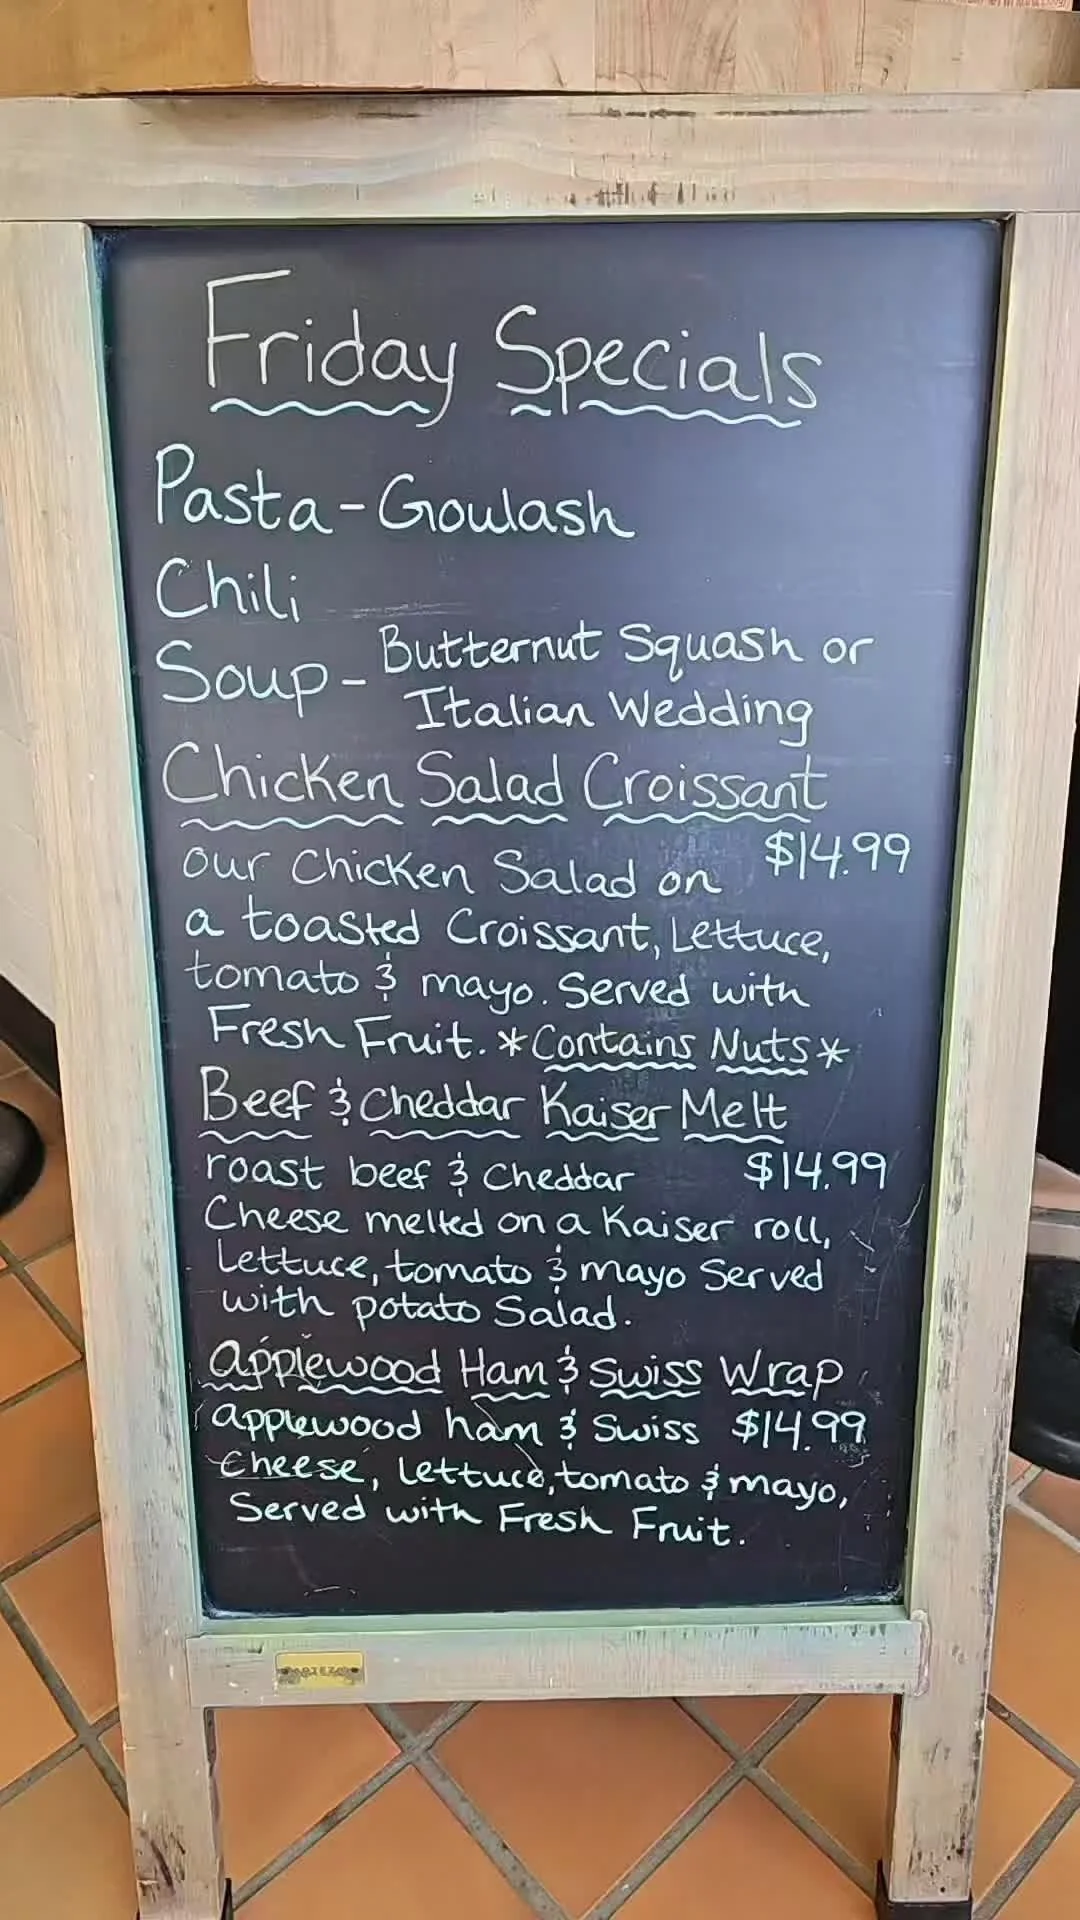 Friday Specials
Pasta - Goulash
Chili
Soup - Butternut Squash or
Italian Wedding
Chicken Salad Croissant
$14.99
our Chicken Salad on
a toasted Croissant, Lettuce,
tomato & mayo. Served with
Fresh Fruit. *Contains Nuts*
Beef & Cheddar Kaiser Melt
roast beef & Cheddar $14.99
Cheese melted on a Kaiser roll,
Lettuce, tomato & mayo Served
with potato Salad.
applewood Ham & Swiss Wrap
applewood ham & Swiss $14.99
Cheese, Lettuce, tomato & mayo,
Served with Fresh Fruit.